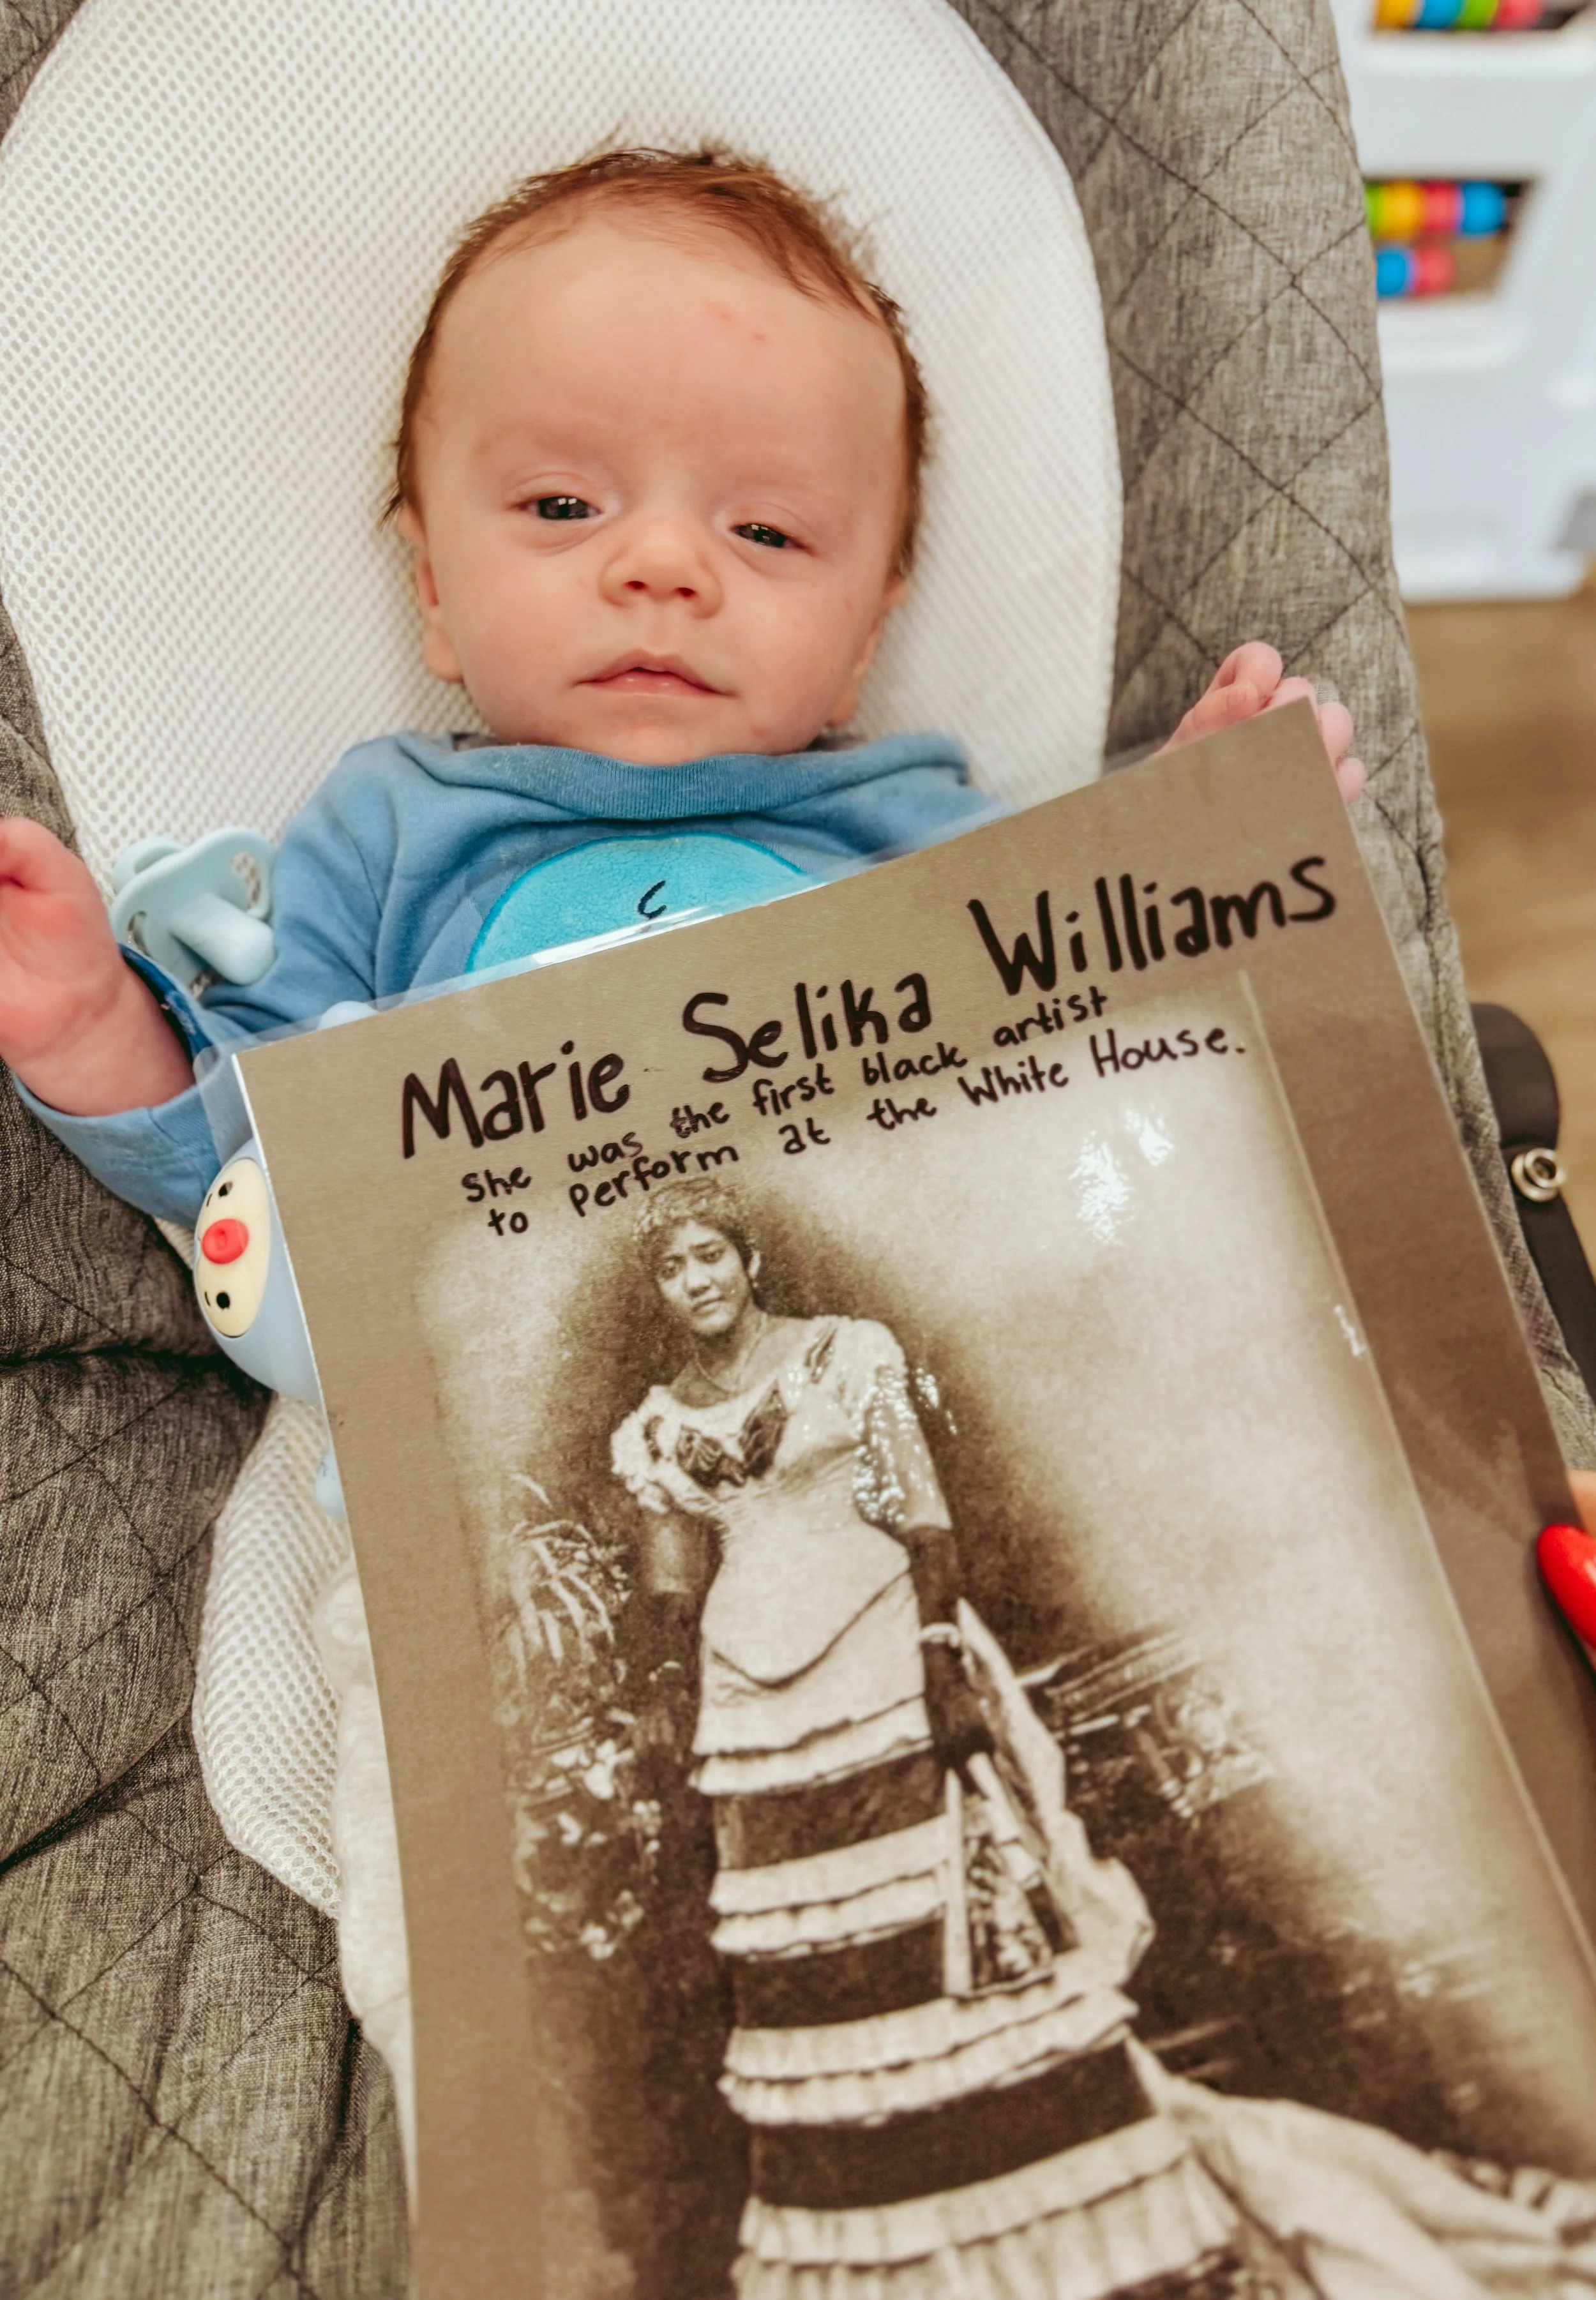 Marie Selika Williams
She was the first black artist
to perform at the White House.